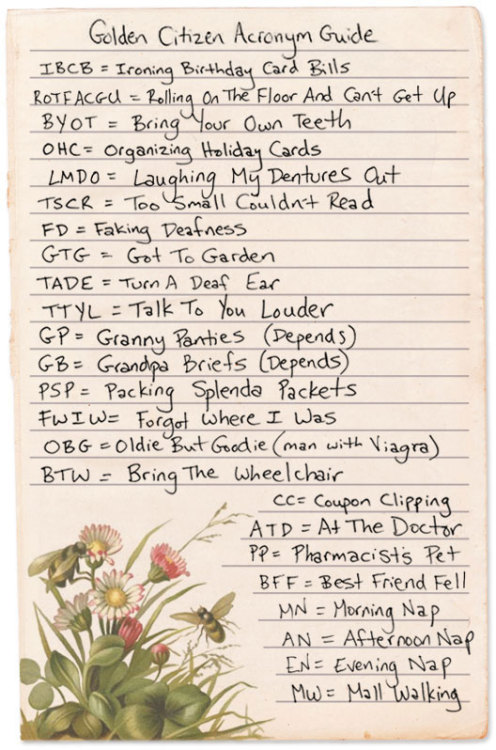 Golden Citizen Acronym Guide
IBCB = Ironing Birthday Card Bills
ROTFACGU = Rolling On The Floor And Can't Get Up
BYOT = Bring Your Own Teeth
OHC = Organizing Holiday Cards
LMDO = Laughing My Dentures Out
TSCR = Too Small Couldn't Read
FD = Faking Deafness
GTG = Got To Garden
TADE = Turn A Deaf Ear
TTYL = Talk To You Louder
GP = Granny Panties (Depends)
GB = Grandpa Briefs (Depends)
PSP = Packing Splenda Packets
FWIW = Forgot Where I Was
OBG = Oldie But Goodie (man with Viagra)
BTW = Bring The Wheelchair
CC = Coupon Clipping
ATD = At The Doctor
PP = Pharmacist's Pet
BFF = Best Friend Fell
MN = Morning Nap
AN = Afternoon Nap
EN = Evening Nap
MW = Mall Walking